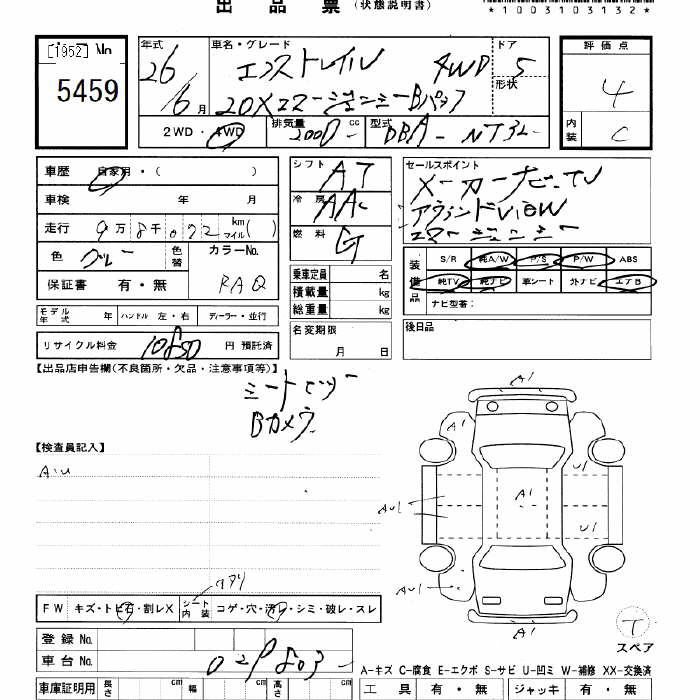 出品票（状態説明書）
*1003103132*
[1952] No
5459
年式 26 6月
車名・グレード エクストレイル 4WD
20Xエマージェンシー Bパック
ドア 5
形状
2WD・4WD
排気量 2000 cc
型式 DBA-NT32-
評価点 4
内装 C
車歴 自家用・（ ）
車検 年 月
走行 9万8千072 km マイル( )
色 グレー 色替
カラーNo. RAQ
保証書 有・無
シフト AT
冷房 AAC
燃料 G
乗車定員 名
積載量 kg
総重量 kg
セールスポイント
メーカーナビ・TV
アラウンドVIEW
エマージェンシー
装備品
S/R 純A/W P/S P/W ABS
純TV 純ナビ 革シート 外ナビ エアB
ナビ型番：
モデル年式 年 ハンドル 左・右 ディーラー・並行
リサイクル料金 10850 円 預託済
名変期限 月 日
後日品
【出品店申告欄（不良箇所・欠品・注意事項等）】
シートヒーター
Bカメラ
【検査員記入】
A・U
A1
A1
U1
AU1
A1
AU1
U1
AU1
A1
FW キズ・トビ石・割レX
シート内装 コゲ・穴・汚レ・シミ・破レ・スレ
T
スペア
登録No.
車台No. 029803
A-キズ C-腐食 E-エクボ S-サビ U-凹ミ W-補修 XX-交換済
車庫証明用 長さ cm 幅 cm 高さ cm
工具 有・無 ジャッキ 有・無